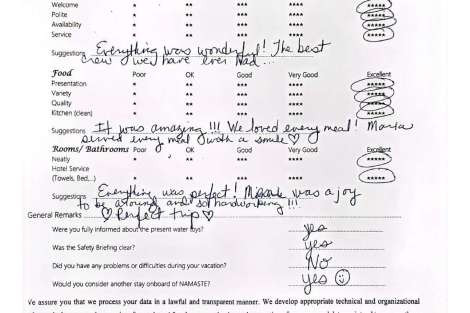 Welcome * ** *** **** *****
Polite * ** *** **** *****
Availability * ** *** **** *****
Service * ** *** **** *****
Suggestions Everything was wonderful! The best
crew we have ever had...
Food Poor OK Good Very Good Excellent
Presentation * ** *** **** *****
Variety * ** *** **** *****
Quality * ** *** **** *****
Kitchen (clean) * ** *** **** *****
Suggestions It was amazing!!! We loved every meal! Maria
served every meal with a smile ♡
Rooms/ Bathrooms Poor OK Good Very Good Excellent
Neatly * ** *** **** *****
Hotel Service
(Towels, Bed,..) * ** *** **** *****
Suggestions Everything was perfect! was a joy
to be around and so hardworking!!!
General Remarks ♡ Perfect trip ♡
Were you fully informed about the present water toys? yes
Was the Safety Briefing clear? yes
Did you have any problems or difficulties during your vacation? No
Would you consider another stay onboard of NAMASTE? yes ☺
We assure you that we process your data in a lawful and transparent manner. We develop appropriate technical and organizational